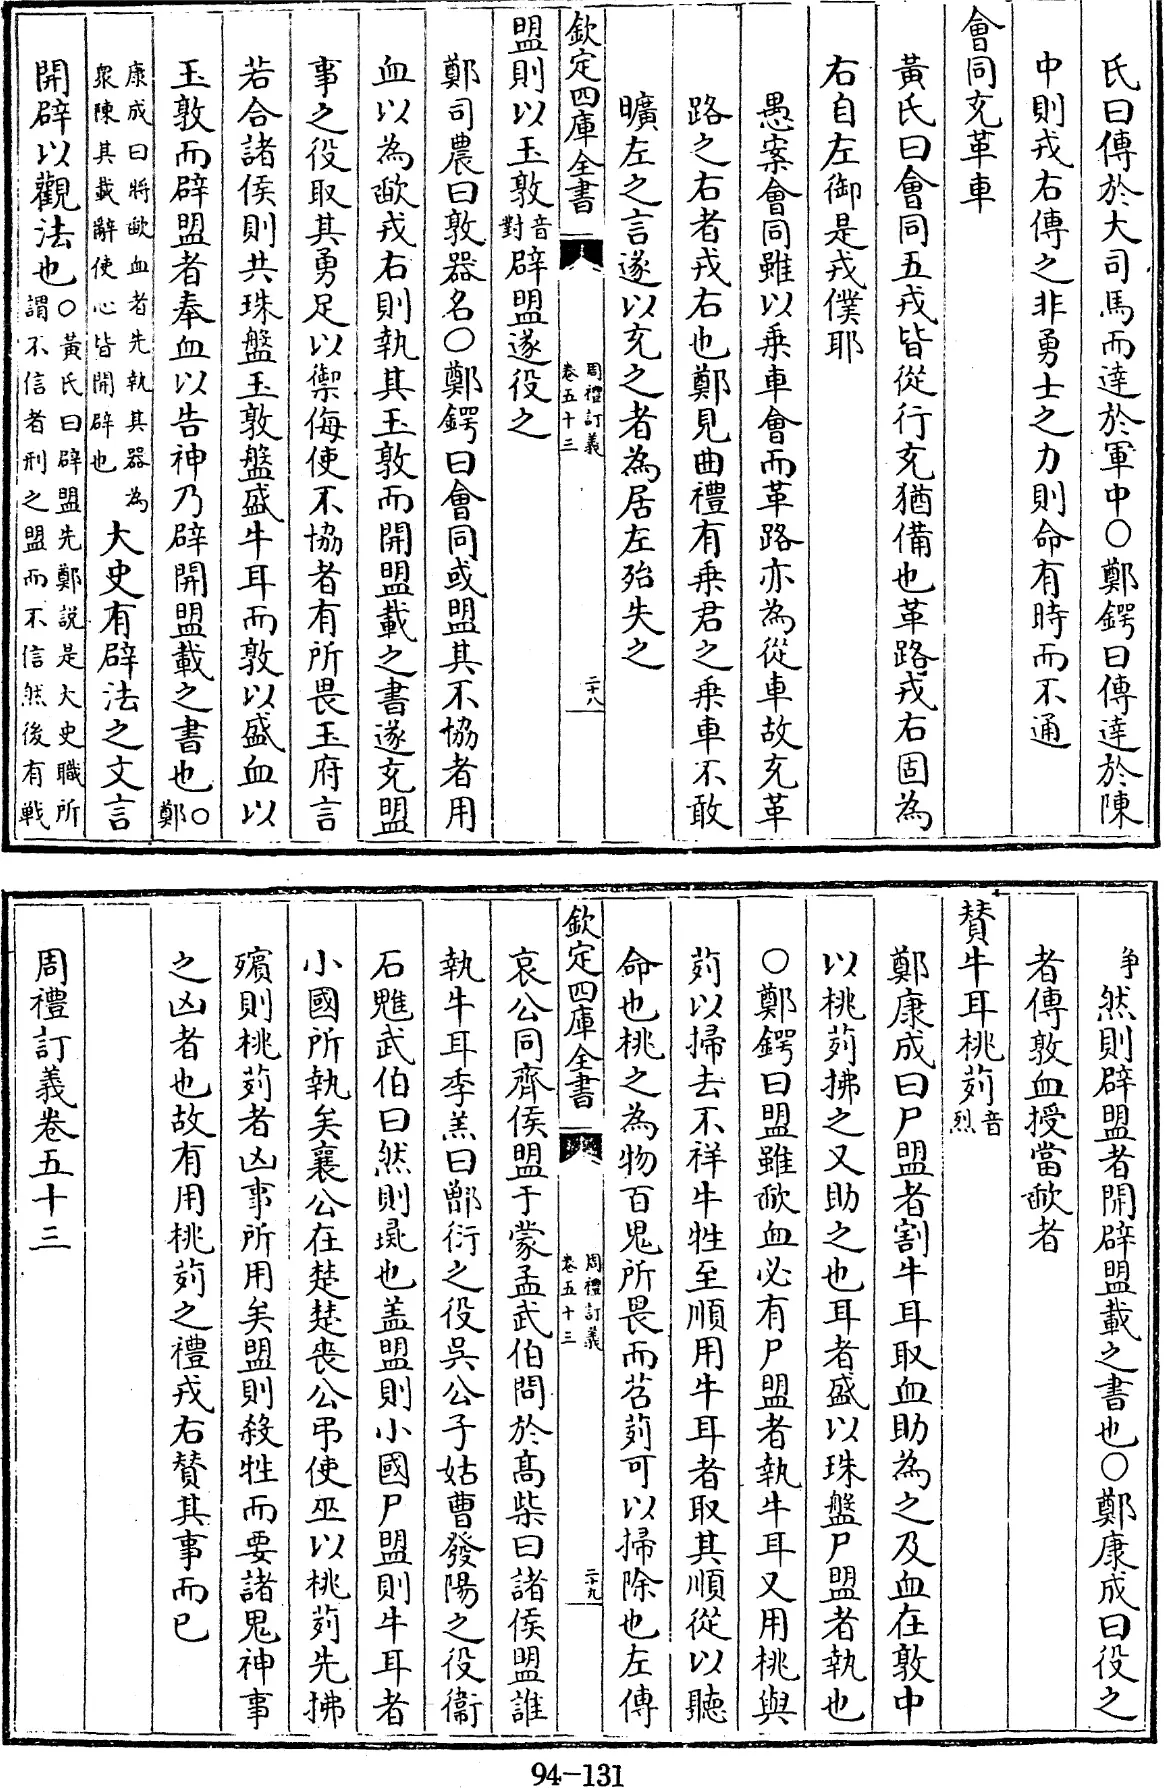 氏曰傳於大司馬而達於軍中○鄭鍔曰傳達於陳
中則戎右傳之非勇士之力則命有時而不通
會同充革車
黄氏曰會同五戎皆從行充猶備也革路戎右固為
右自左御是戎僕耶
愚案會同雖以乗車會而革路亦為從車故充革
路之右者戎右也鄭見曲禮有乗君之乗車不敢
曠左之言遂以充之者為居左殆失之
欽定四庫全書
周禮訂義
卷五十三
二十八
盟則以玉敦音對辟盟遂役之
鄭司農曰敦器名○鄭鍔曰會同或盟其不協者用
血以為歃戎右則執其玉敦而開盟載之書遂充盟
事之役取其勇足以禦侮使不協者有所畏玉府言
若合諸侯則共珠盤玉敦盤盛牛耳而敦以盛血以
玉敦而辟盟者奉血以告神乃辟開盟載之書也○鄭
康成曰將歃血者先執其器為
衆陳其載辭使心皆開辟也
大史有辟法之文言
開辟以觀法也○黄氏曰辟盟先鄭説是大史職所
謂不信者刑之盟而不信然後有戰
争然則辟盟者開辟盟載之書也○鄭康成曰役之
者傳敦血授當歃者
賛牛耳桃茢音烈
鄭康成曰尸盟者割牛耳取血助為之及血在敦中
以桃茢拂之又助之也耳者盛以珠盤尸盟者執也
○鄭鍔曰盟雖歃血必有尸盟者執牛耳又用桃與
茢以掃去不祥牛牲至順用牛耳者取其順從以聽
命也桃之為物百鬼所畏而苕茢可以掃除也左傳
欽定四庫全書
周禮訂義
卷五十三
二十九
哀公同齊侯盟于蒙孟武伯問於髙柴曰諸侯盟誰
執牛耳季羔曰鄫衍之役吳公子姑曹發陽之役衞
石魋武伯曰然則彘也盖盟則小國尸盟則牛耳者
小國所執矣襄公在楚楚喪公弔使巫以桃茢先拂
殯則桃茢者凶事所用矣盟則殺牲而要諸鬼神事
之凶者也故有用桃茢之禮戎右賛其事而已
周禮訂義卷五十三
94-131